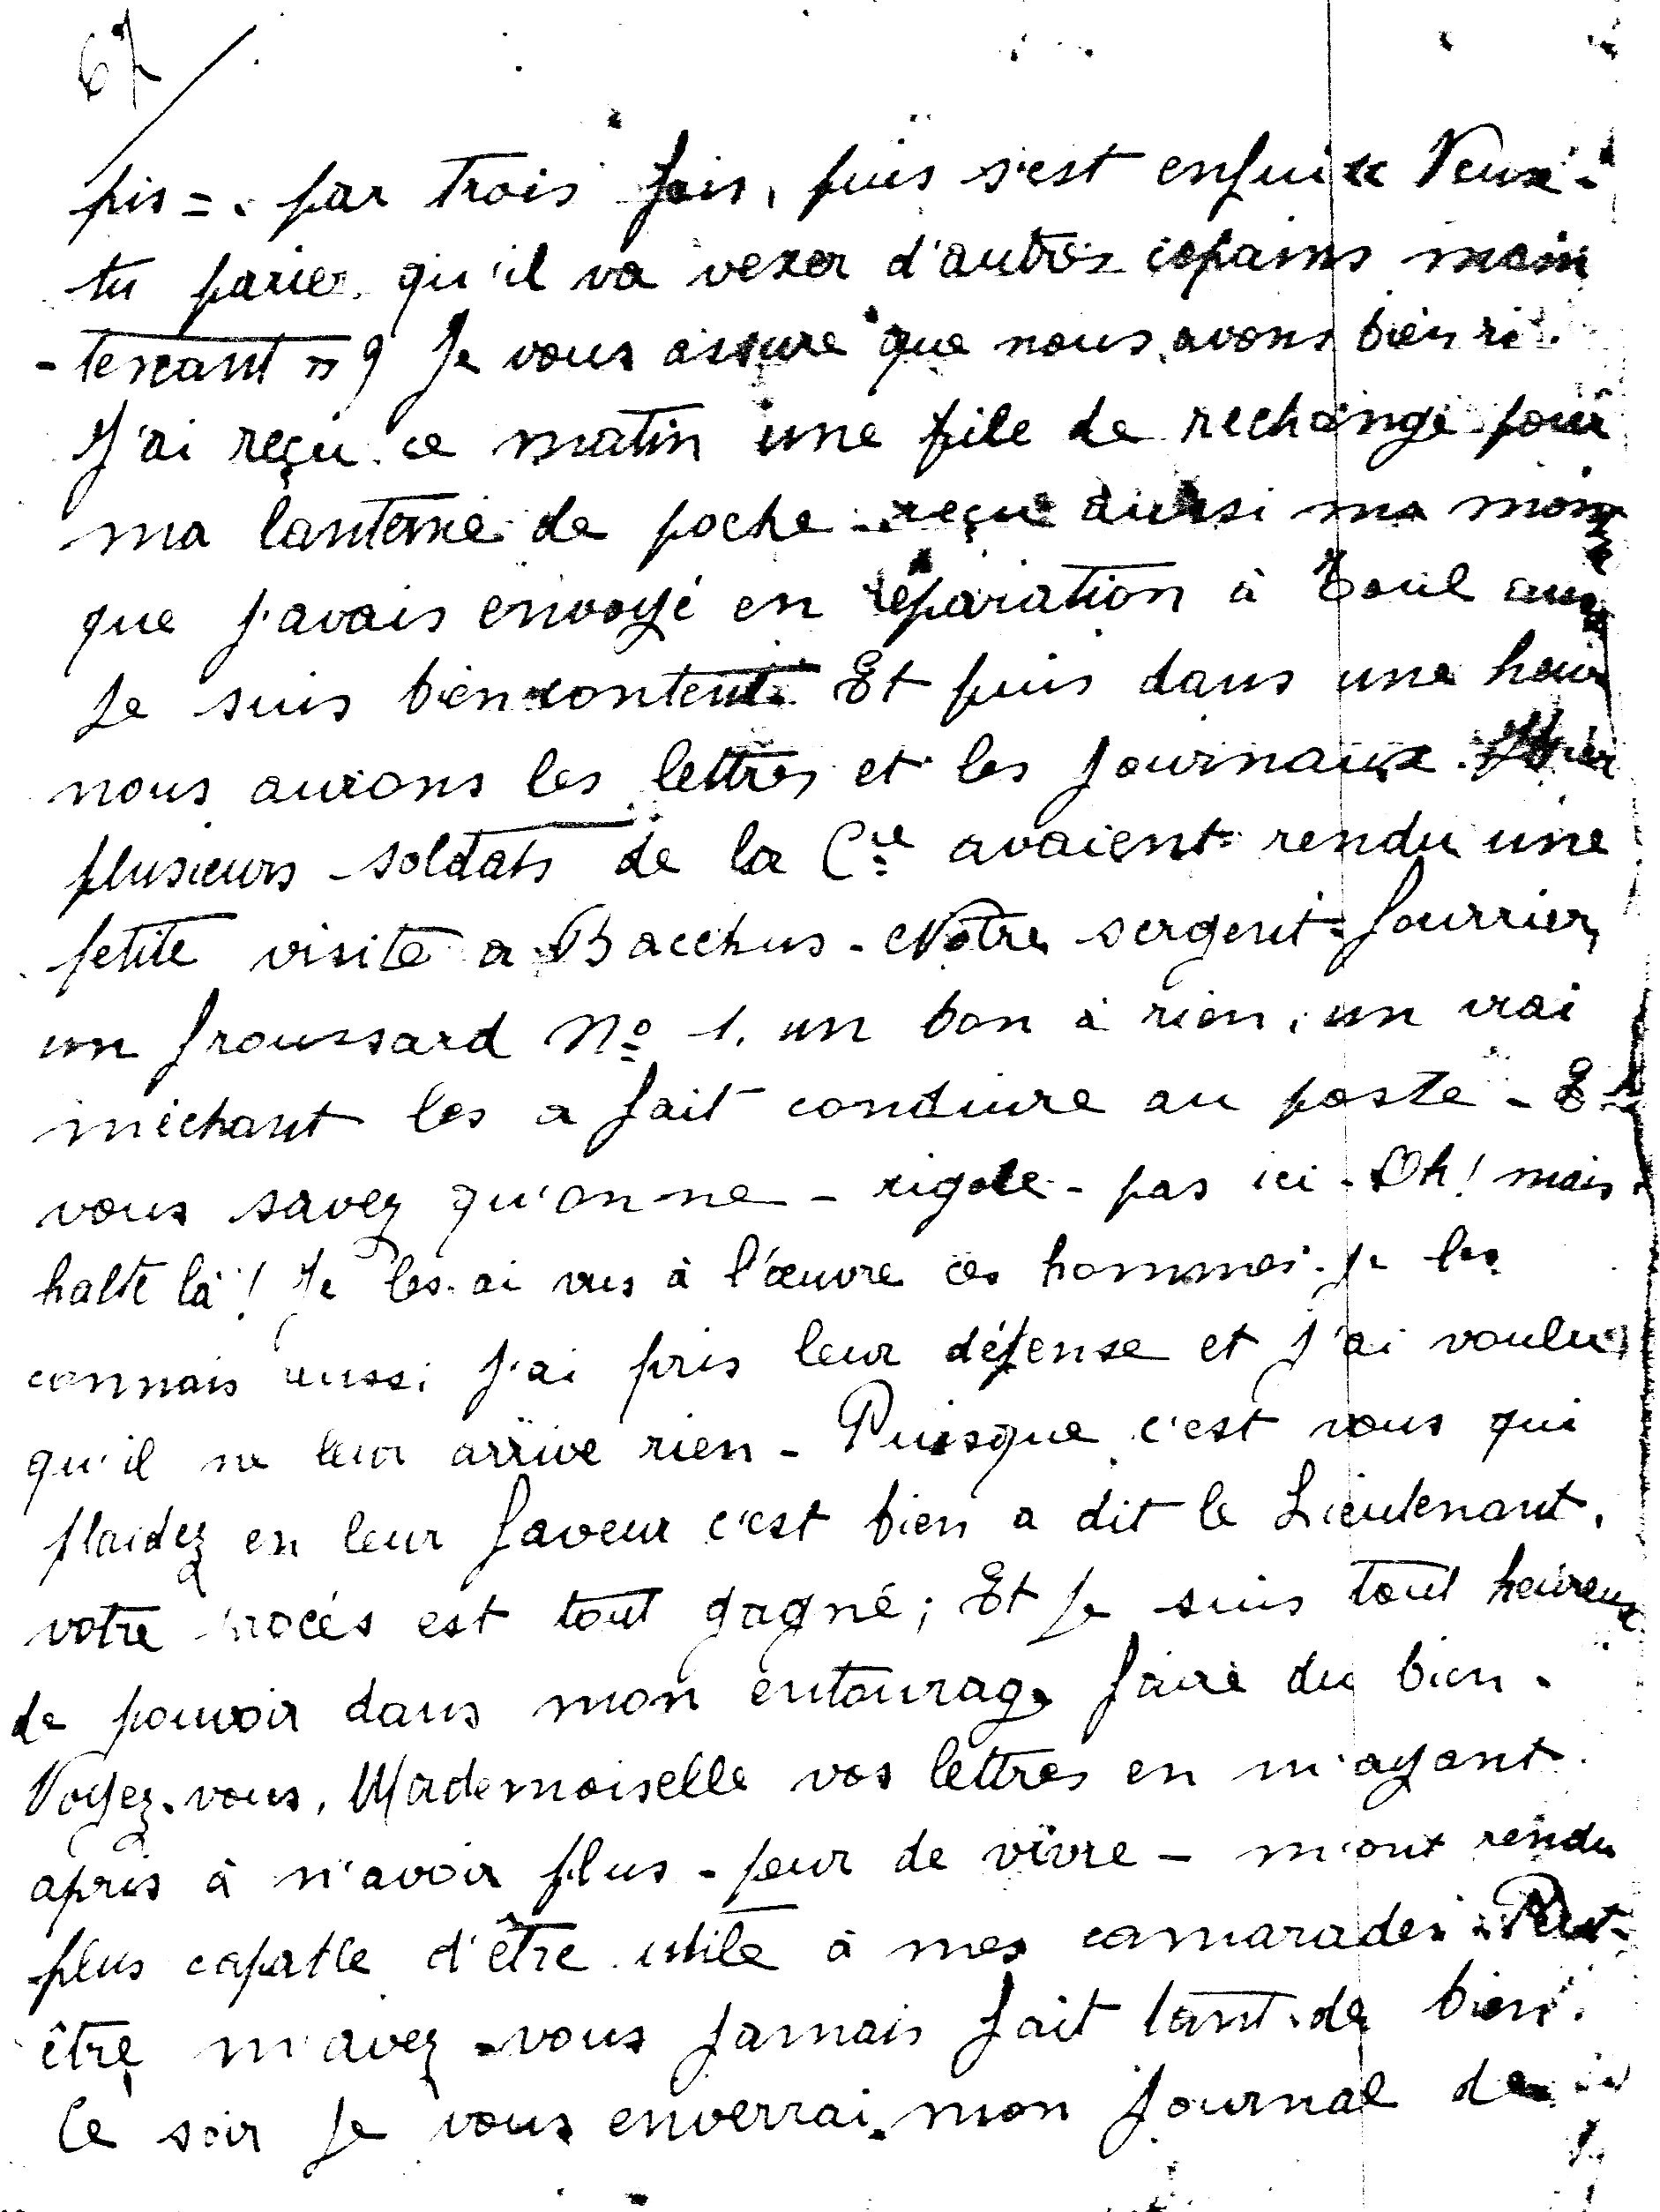 67
pis = . par trois fois, puis s'est enfui « Veux-
tu parier qu'il va vexer d'autres copains main
-tenant » ? Je vous assure que nous avons bien ri.
J'ai reçu ce matin une pile de rechange pour
ma lanterne de poche - reçu aussi ma
que j'avais envoyé en réparation à Toul
Je suis bien content. Et puis dans une
nous aurons les lettres et les journaux. Hier
plusieurs soldats de la Cie avaient rendu une
petite visite a Bacchus - Notre sergent-fourrier,
un froussard No 1. un bon à rien, un vrai
méchant les a fait conduire au poste - Et
vous savez qu'on ne - rigole - pas ici - Oh! mais
halte là! Je les ai vus à l'œuvre ces hommes. Je les
connais aussi j'ai pris leur défense et j'ai voulu
qu'il ne leur arrive rien - Puisque c'est vous qui
plaidez en leur faveur c'est bien a dit le Lieutenant.
votre procès est tout gagné; Et je suis tout heureux
de pouvoir dans mon entourage faire du bien.
Voyez-vous, Mademoiselle vos lettres en m'ayant
apris à n'avoir plus - peur de vivre - m'ont rendu
plus capable d'être utile à mes camarades. Peut-
être m'avez-vous jamais fait tant de bien.
Ce soir je vous enverrai mon journal de